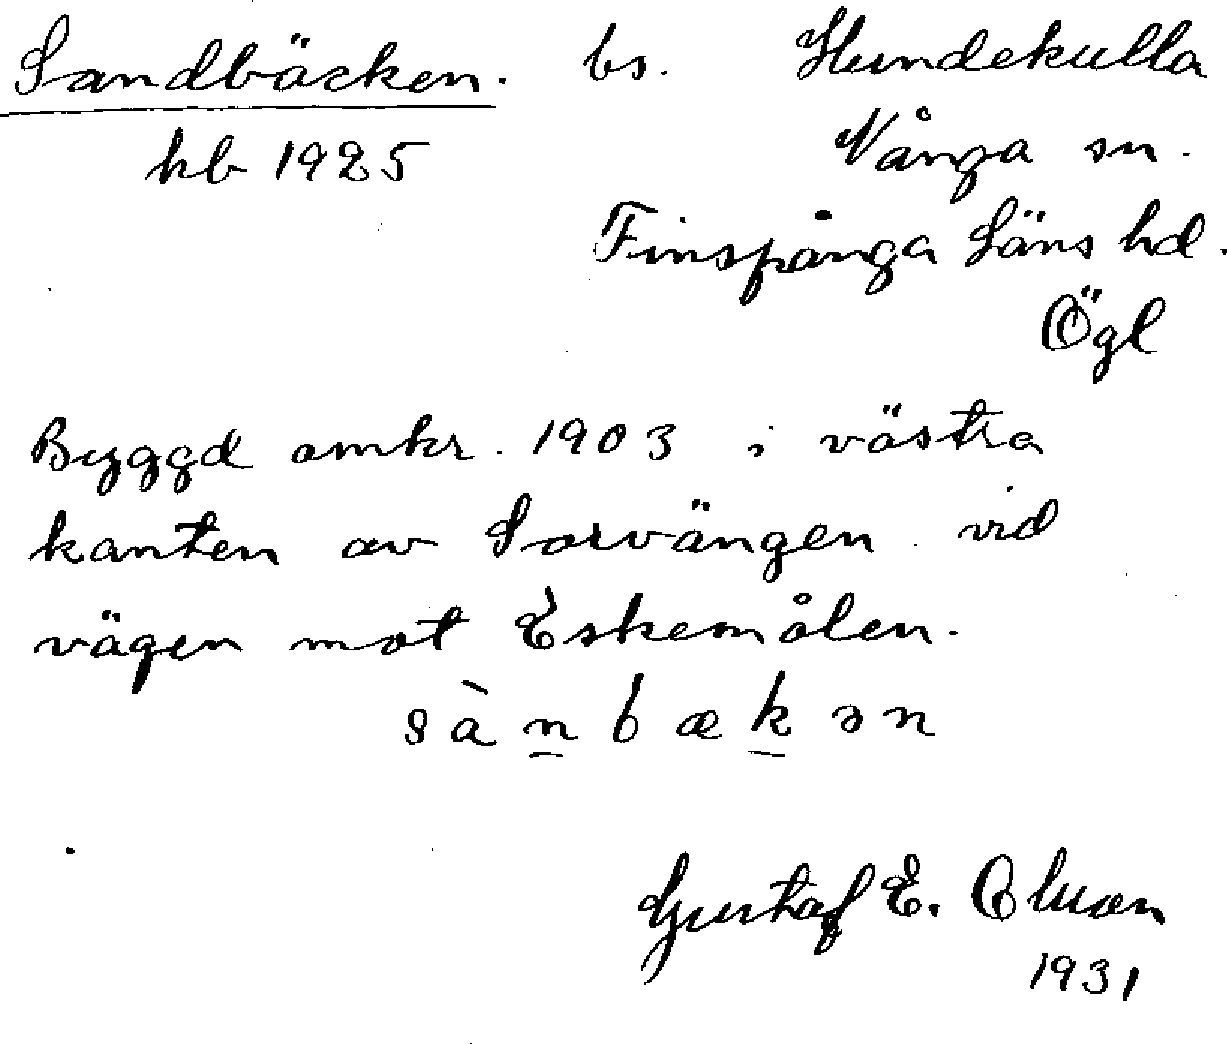 Sandbäcken. bs. Hundekulla
hb 1925 Vånga sn.
Finspånga Läns hd.
Ögl
Byggd omkr. 1903 i västra
kanten av Sorvängen vid
vägen mot Eskemålen.
sànbækən
Gustaf E. Olsson
1931